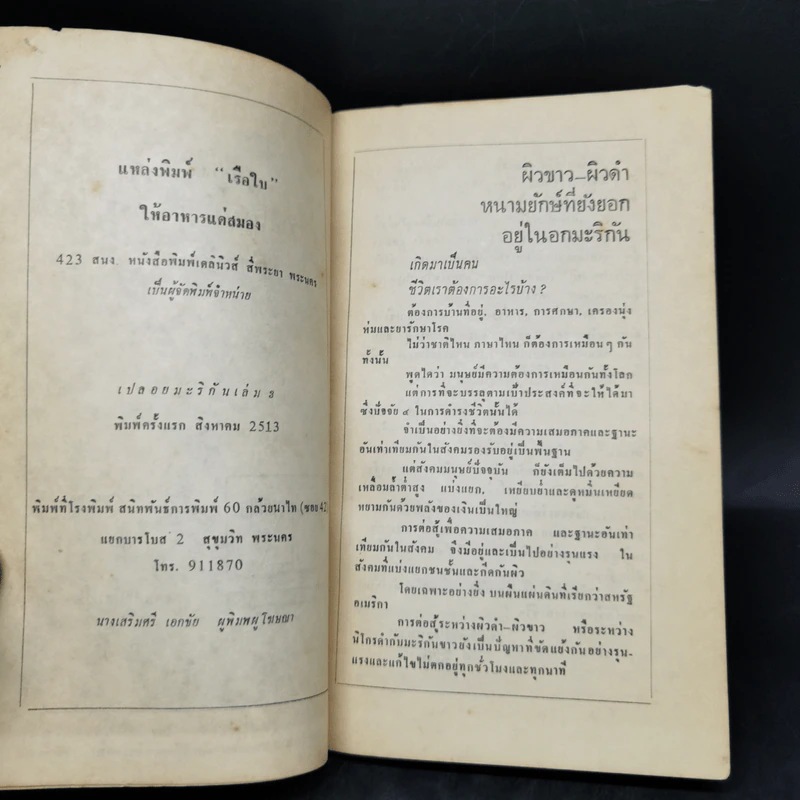 แหล่งพิมพ์ "เรือใบ"
ให้อาหารแด่สมอง
423 สนง. หนังสือพิมพ์เดลินิวส์ สี่พระยา พระนคร
เป็นผู้จัดพิมพ์จำหน่าย
เปลือยมะริกันเล่ม ๑
พิมพ์ครั้งแรก สิงหาคม 2513
พิมพ์ที่โรงพิมพ์ สนิทพันธ์การพิมพ์ 60 กล้วยน้ำไท (ซอย 42
แยกบารโบส 2 สุขุมวิท พระนคร
โทร. 911870
นางเสริมศรี เอกชัย ผู้พิมพ์ผู้โฆษณา
ผิวขาว–ผิวดำ
หนามยักษ์ที่ยังยอก
อยู่ในอกมะริกัน
เกิดมาเป็นคน
ชีวิตเราต้องการอะไรบ้าง ?
ต้องการบ้านที่อยู่, อาหาร, การศึกษา, เครื่องนุ่ง
ห่มและยารักษาโรค
ไม่ว่าชาติไหน ภาษาไหน ก็ต้องการเหมือนๆ กัน
ทั้งนั้น
พูดได้ว่า มนุษย์มีความต้องการเหมือนกันทั้งโลก
แต่การที่จะบรรลุตามเป้าประสงค์ที่จะให้ได้มา
ซึ่งปัจจัย ๔ ในการดำรงชีวิตนั้นได้
จำเป็นอย่างยิ่งที่จะต้องมีความเสมอภาคและฐานะ
อันเท่าเทียมกันในสังคมรองรับอยู่เป็นพื้นฐาน
แต่สังคมมนุษย์ปัจจุบัน ก็ยังเต็มไปด้วยความ
เหลื่อมล้ำต่ำสูง แบ่งแยก, เหยียบย่ำและดูหมิ่นเหยียด
หยามกันด้วยพลังของเงินเป็นใหญ่
การต่อสู้เพื่อความเสมอภาค และฐานะอันเท่า
เทียมกันในสังคม จึงมีอยู่และเป็นไปอย่างรุนแรง ใน
สังคมที่แบ่งแยกชนชั้นและกีดกันผิว
โดยเฉพาะอย่างยิ่ง บนผืนแผ่นดินที่เรียกว่าสหรัฐ
อเมริกา
การต่อสู้ระหว่างผิวดำ–ผิวขาว หรือระหว่าง
นิโกรดำกับมะริกันขาวยังเป็นปัญหาที่ขัดแย้งกันอย่างรุน-
แรงและแก้ไขไม่ตกอยู่ทุกชั่วโมงและทุกนาที